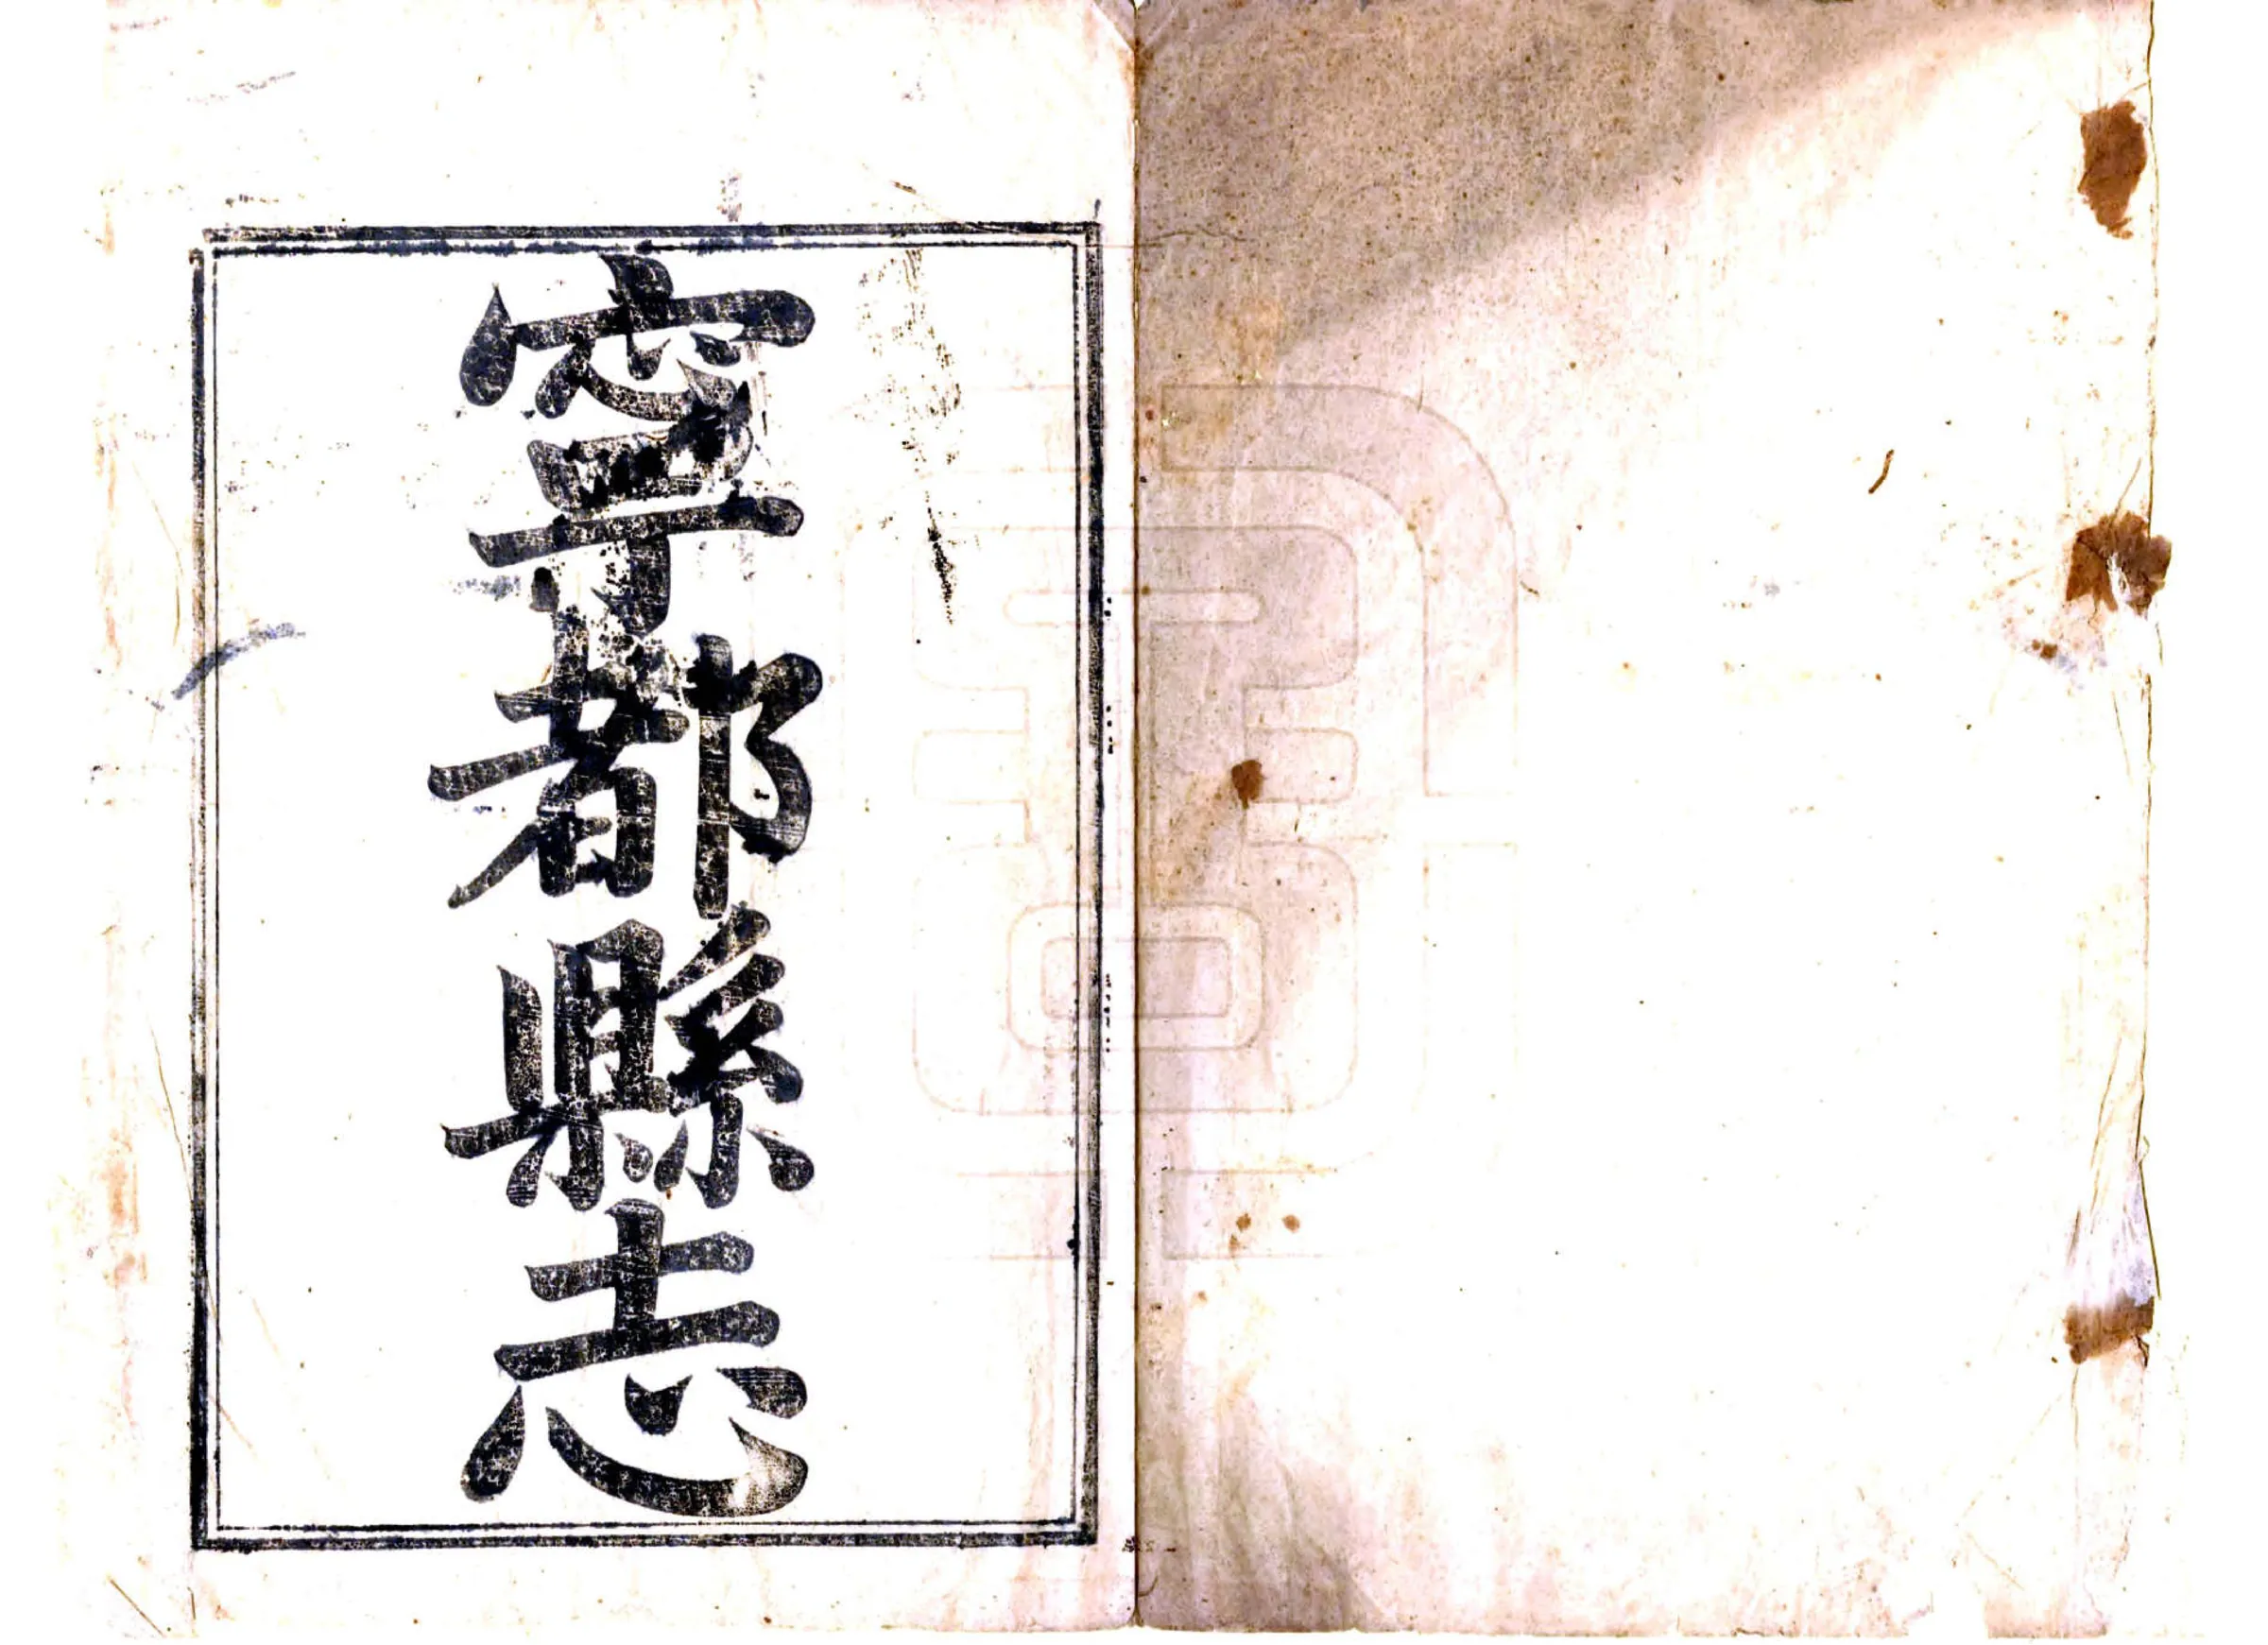 寧都縣志